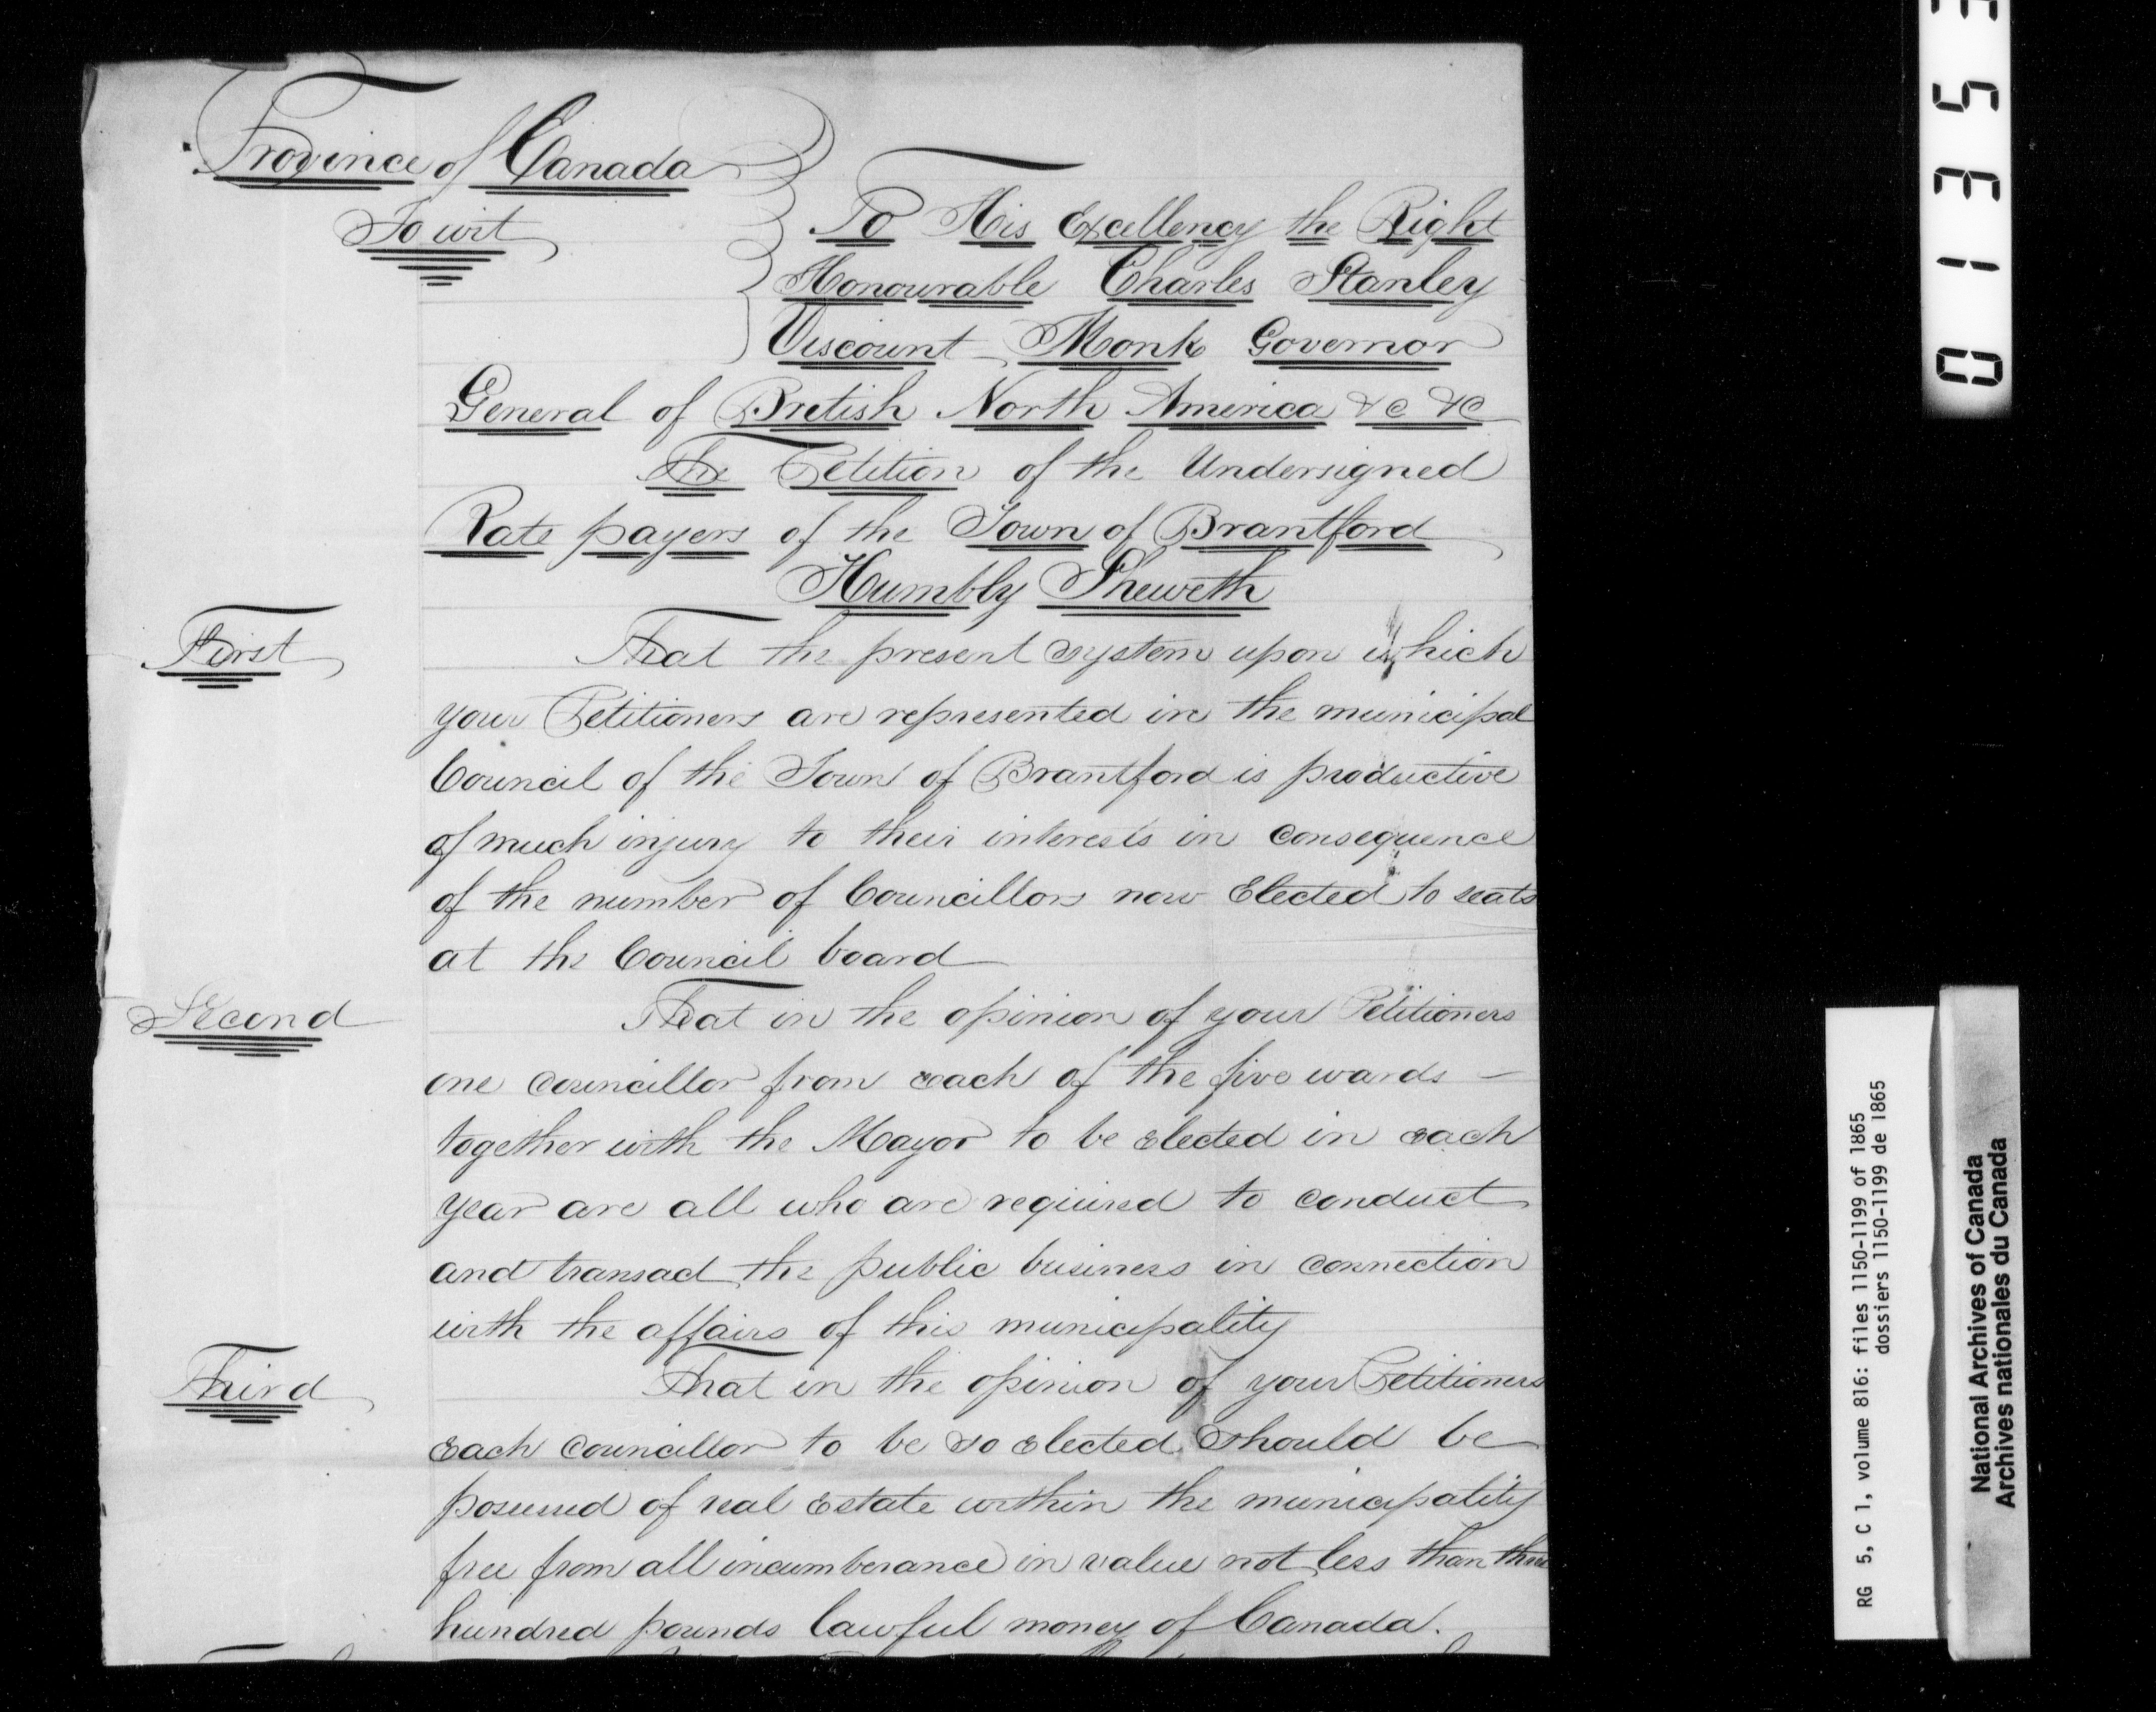 Province of Canada
To wit
To His Excellency the Right
Honourable Charles Stanley
Viscount Monk Governor
General of British North America &c &c
The Petition of the Undersigned
Rate payers of the Town of Brantford
Humbly Sheweth
First
That the present system upon which
your Petitioners are represented in the municipal
Council of the Town of Brantford is productive
of much injury to their interests in consequence
of the number of Councillors now Elected to seats
at the Council board
Second
That in the opinion of your Petitioners
one councillor from each of the five wards —
together with the Mayor to be elected in each
year are all who are required to conduct
and transact the public business in connection
with the affairs of this municipality
Third
That in the opinion of your Petitioners
each councillor to be so elected should be
possessed of real Estate within the municipality
free from all incumberance in value not less than three
hundred pounds lawful money of Canada.
0135
RG 5, C 1, volume 816: files 1150-1199 of 1865
dossiers 1150-1199 de 1865
National Archives of Canada
Archives nationales du Canada